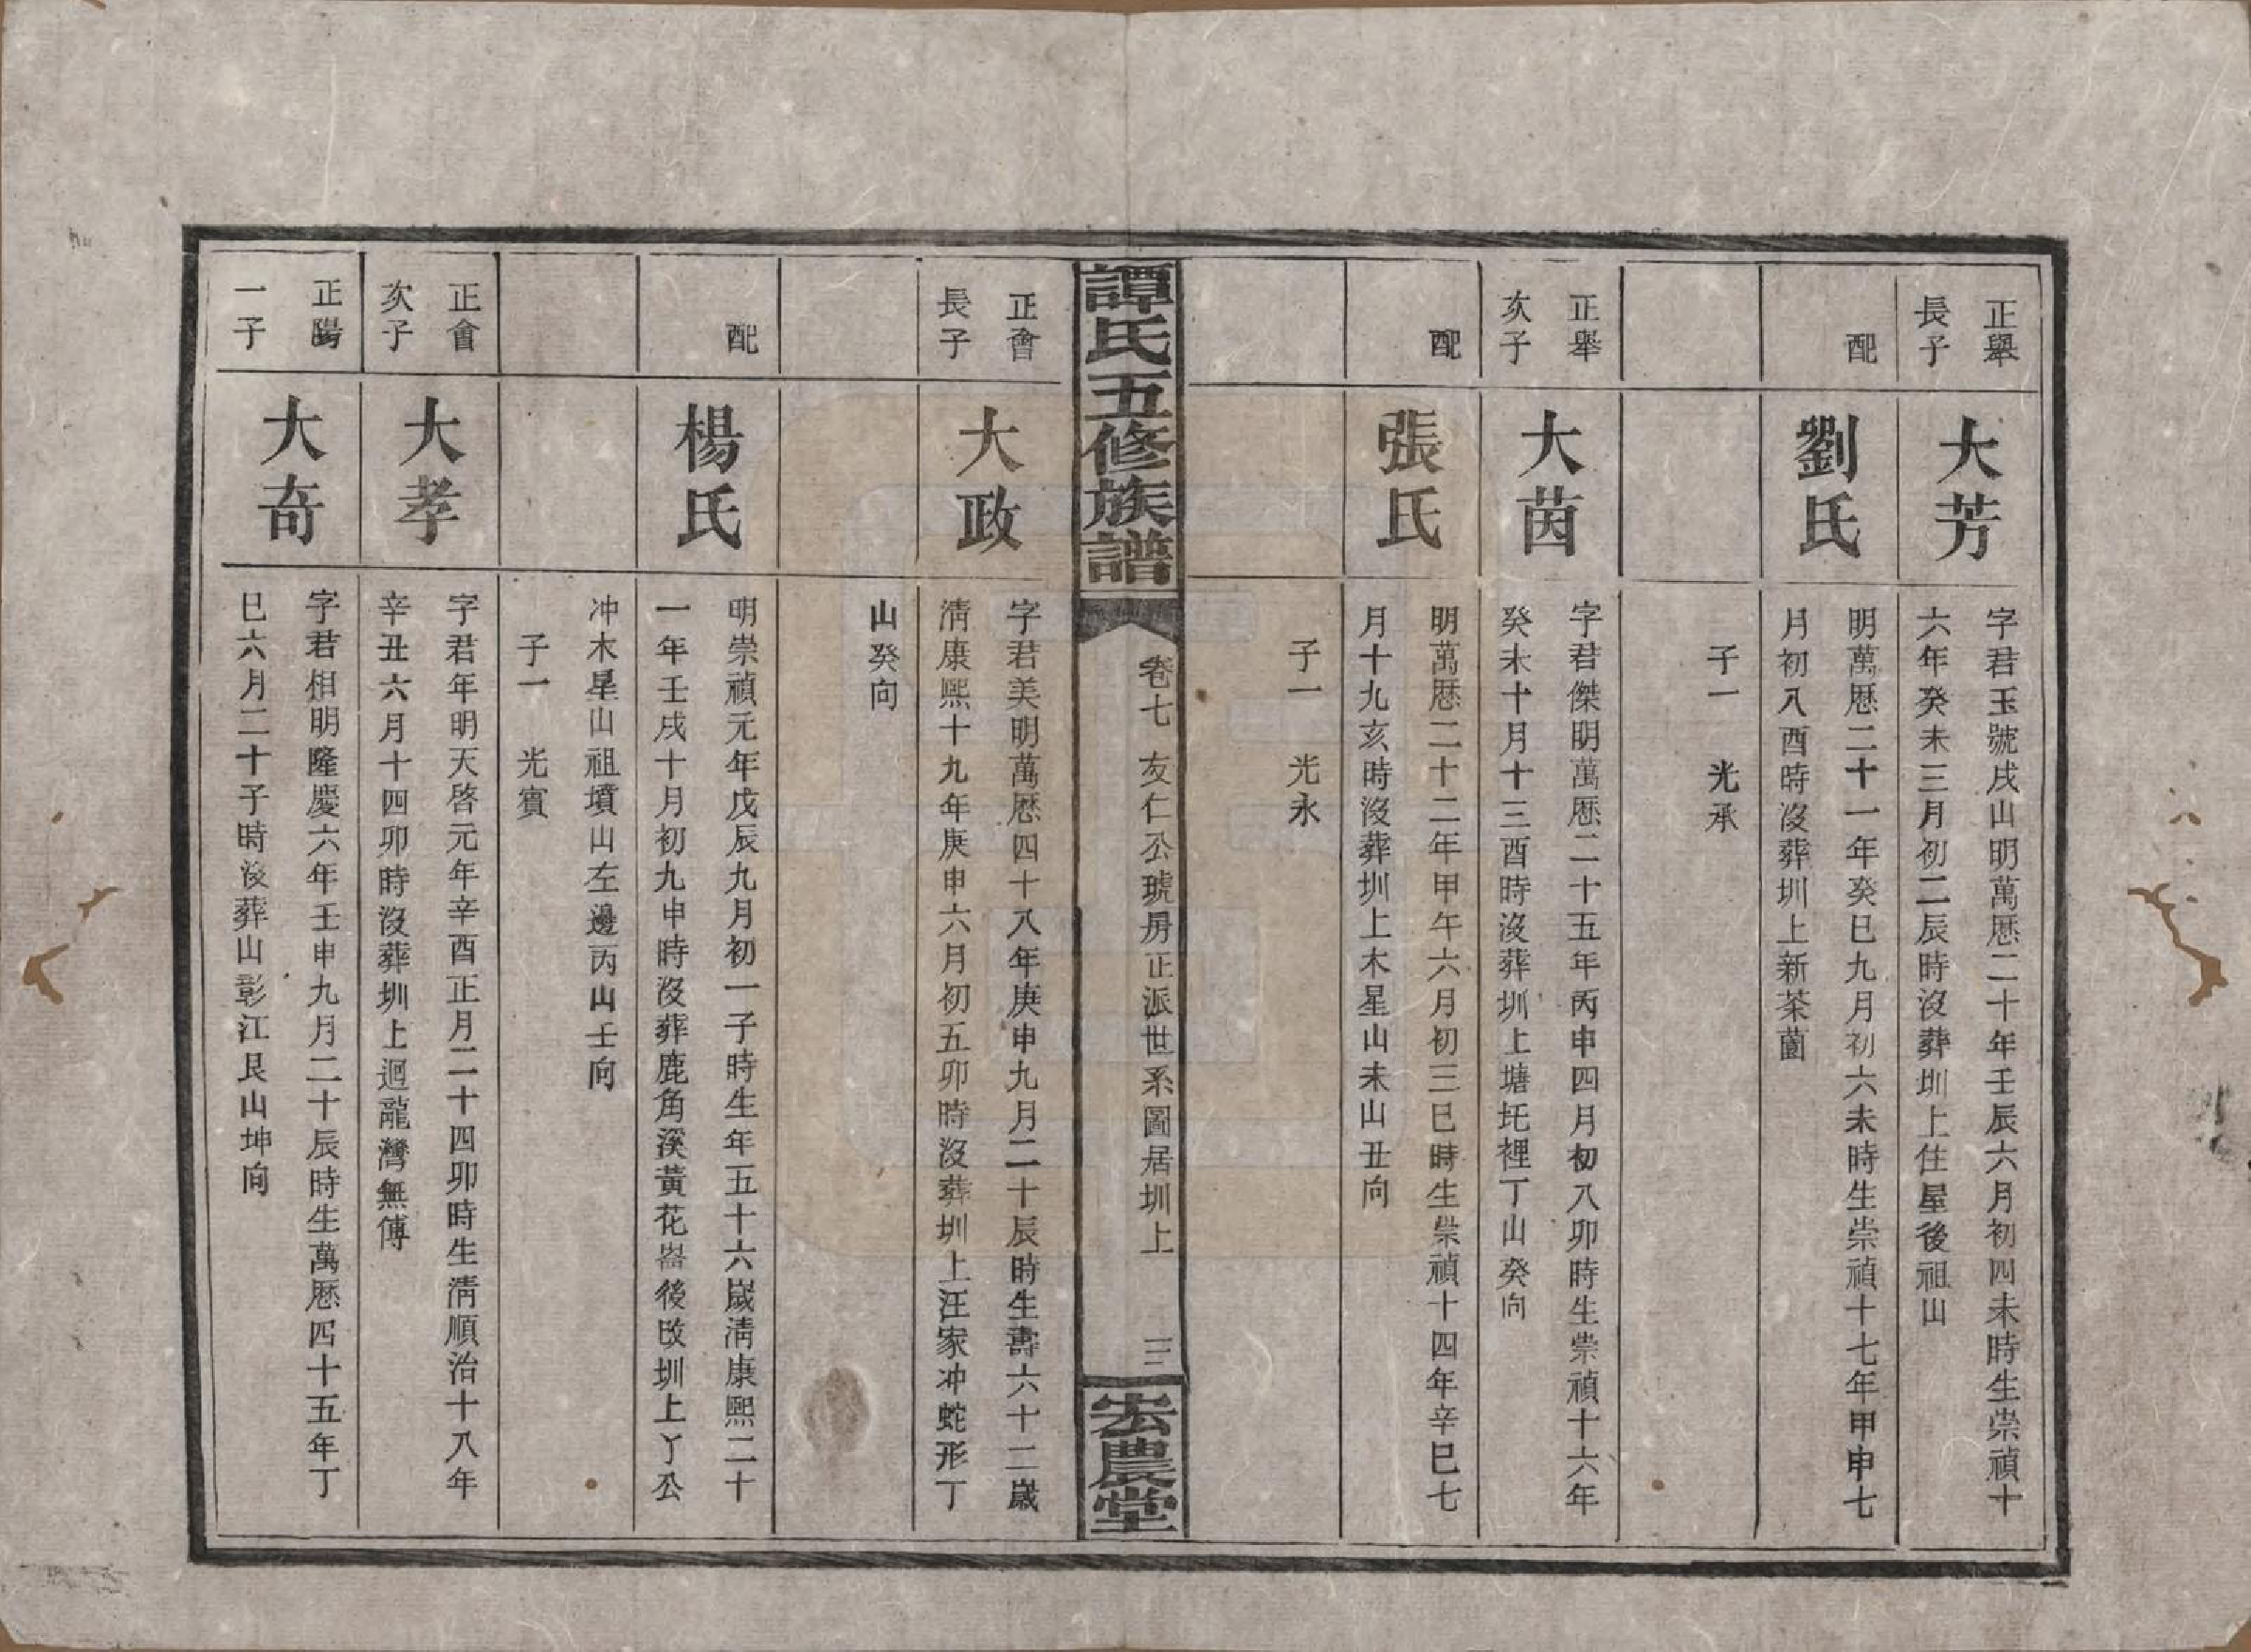 正舉
長子
大芳
字君玉號戌山明萬厯二十年壬辰六月初四未時生崇禎十
六年癸未三月初二辰時沒葬圳上住屋後祖山
配
劉氏
明萬厯二十一年癸巳九月初六未時生崇禎十七年甲申七
月初八酉時沒葬圳上新茶薗
子一　光承
正舉
次子
大茵
字君傑明萬厯二十五年丙申四月初八卯時生崇禎十六年
癸未十月十三酉時沒葬圳上塘坉裡丁山癸向
配
張氏
明萬厯二十二年甲午六月初三巳時生崇禎十四年辛巳七
月十九亥時沒葬圳上木星山未山丑向
子一　光永
譚氏五修族譜
卷七　友仁公琥房正派世系圖居圳上　三
宏農堂
正會
長子
大政
字君美明萬厯四十八年庚申九月二十辰時生壽六十二歲
清康熙十九年庚申六月初五卯時沒葬圳上汪家冲蛇形丁
山癸向
配
楊氏
明崇禎元年戊辰九月初一子時生年五十六歲清康熙二十
一年壬戌十月初九申時沒葬鹿角溪黃花崙後改圳上丫公
冲木星山祖墳山左邊丙山壬向
子一　光賓
正會
次子
大孝
字君年明天啓元年辛酉正月二十四卯時生清順治十八年
辛丑六月十四卯時沒葬圳上迴龍灣無傳
正陽
一子
大奇
字君相明隆慶六年壬申九月二十辰時生萬厯四十五年丁
巳六月二十子時沒葬山彰江艮山坤向